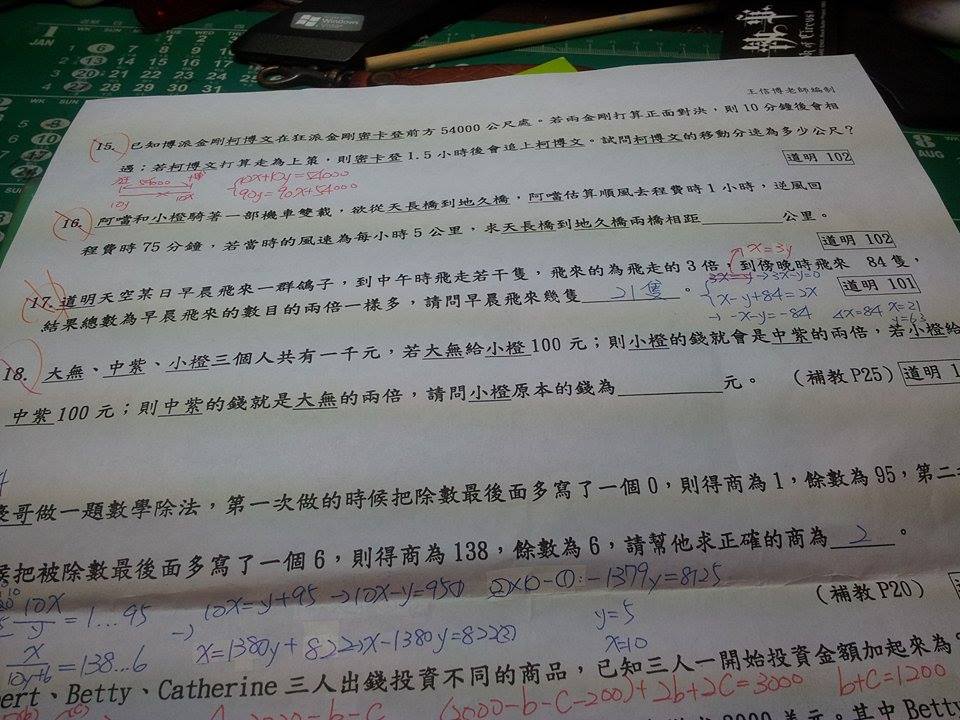 王信博老師編制
15. 已知博派金剛柯博文在狂派金剛密卡登前方 54000 公尺處。若兩金剛打算正面對決，則 10 分鐘後會相
遇；若柯博文打算走為上策，則密卡登 1.5 小時後會追上柯博文。試問柯博文的移動分速為多少公尺？
道明 102
54000
10x+10y=54000
90y=90x+54000
10y
10x
16. 阿噹和小橙騎著一部機車雙載，欲從天長橋到地久橋，阿噹估算順風去程費時 1 小時，逆風回
程費時 75 分鐘，若當時的風速為每小時 5 公里，求天長橋到地久橋兩橋相距 公里。
道明 102
x=3y
17. 道明天空某日早晨飛來一群鴿子，到中午時飛走若干隻，飛來的為飛走的 3 倍，到傍晚時飛來 84 隻，
結果總數為早晨飛來的數目的兩倍一樣多，請問早晨飛來幾隻 21隻 。
道明 101
3x=y→3x-y=0
x-y+84=2x
→-x-y=-84 4x=84 x=21
y=63
18. 大無、中紫、小橙三個人共有一千元，若大無給小橙 100 元；則小橙的錢就會是中紫的兩倍，若小橙給
中紫 100 元；則中紫的錢就是大無的兩倍，請問小橙原本的錢為 元。 （補教 P25） 道明 1
豪哥做一題數學除法，第一次做的時候把除數最後面多寫了一個 0，則得商為 1，餘數為 95，第二
候把被除數最後面多寫了一個 6，則得商為 138，餘數為 6，請幫他求正確的商為 2 。
（補教 P20）
10x/y=1...95 → 10x=y+95 →10x-y=95① ②×10-①:-1379y=8125
x/10y+6=138...6 x=1380y+822 x-1380y=822② y=5
x=10
bert、Betty、Catherine 三人出錢投資不同的商品，已知三人一開始投資金額加起來為
2000-b-c (2000-b-c-200)+2b+2c=3000 b+c=1200
3000 美元。其中 Betty
1
JAN
8
AUG
Windows